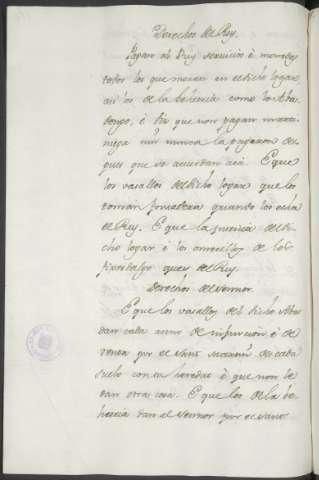 Derechos del Rey.
Pagan al Rey servicios è monedas
todos los que moran en el dicho logar,
an los de la behetria como los Aba-
dengos, è diz que non pagan marti-
niega nin nunca la pagaron des-
pues que se acuerdan acà. E que
los vasallos del dicho logar que les
toman fonsadera quando los echa
el Rey. E que la justicia del di-
cho logar è los omecillos de los
fijosdalgo que es del Rey.
Derechos del Sennor.
E que los vasallos del dicho Abat
dan cada anno de infurcion è de
renta por el Sant Martin de cada
suelo con su heredat è que non le
dan otra cosa. E que los de la be-
hetria dan al Sennor por el Sant